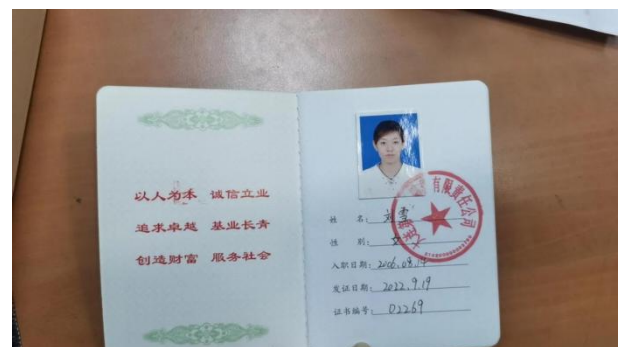 以人为本 诚信立业
追求卓越 基业长青
创造财富 服务社会
有限责任公司
姓 名: 雪
性 别: 女
入职日期: 2006.08.19
发证日期: 2022.9.19
证书编号: 02269